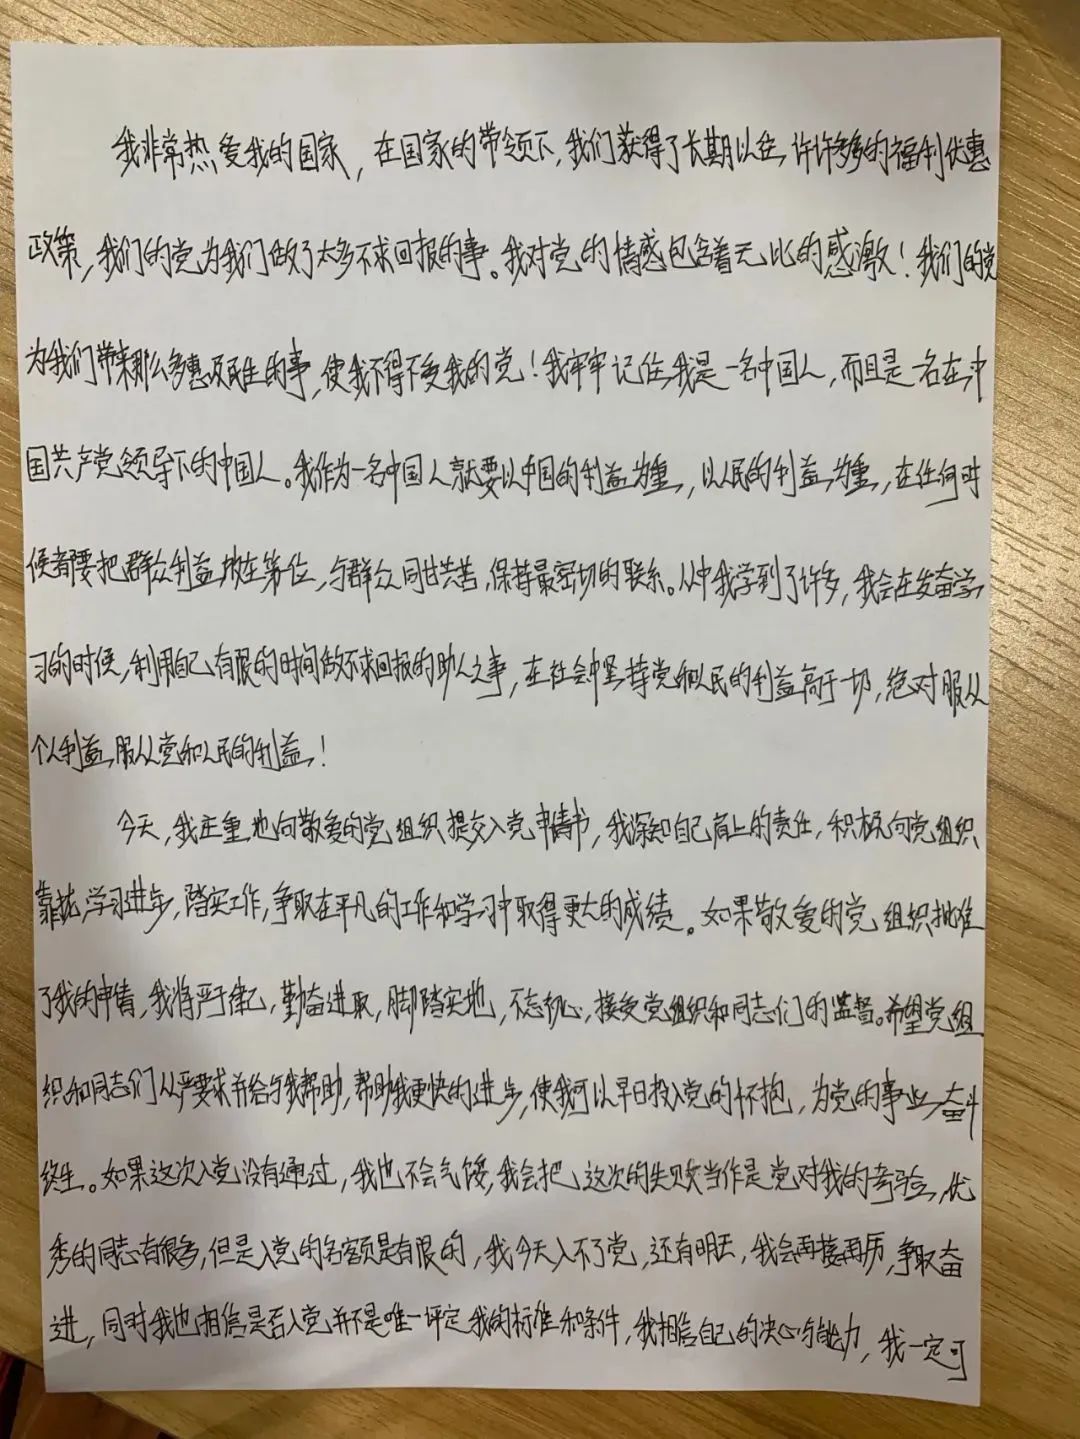 我非常热爱我的国家，在国家的带领下，我们获得了长期以往许许多多的福利优惠
政策，我们的党为我们做了太多不求回报的事。我对党的情感包含着无比的感激！我们的党
为我们带来那么多惠及民生的事，使我不得不爱我的党！我牢牢记住我是一名中国人，而且是一名在中
国共产党领导下的中国人。我作为一名中国人就要以中国的利益为重，以人民的利益为重，在任何时
候都要把群众利益放在第一位，与群众同甘共苦，保持最密切的联系。从中我学到了许多，我会在发奋学
习的时候，利用自己有限的时间做不求回报的助人之事，在社会中坚持党和人民的利益高于一切，绝对服从
个人利益服从党和人民的利益！
今天，我庄重地向敬爱的党组织提交入党申请书，我深知自己肩上的责任，积极向党组织
靠拢，学习进步，踏实工作，争取在平凡的工作和学习中取得更大的成绩。如果敬爱的党组织批准
了我的申请，我将严于律己，勤奋进取，脚踏实地，不忘初心，接受党组织和同志们的监督。希望党组
织和同志们从严要求并给与我帮助，帮助我更快的进步，使我可以早日投入党的怀抱，为党的事业奋斗
终生。如果这次入党没有通过，我也不会气馁，我会把这次的失败当作是党对我的考验，优
秀的同志有很多，但是入党的名额是有限的，我今天入不了党，还有明天，我会再接再厉，争取奋
进，同时我也相信是否入党并不是唯一评定我的标准和条件，我相信自己的决心与能力，我一定可